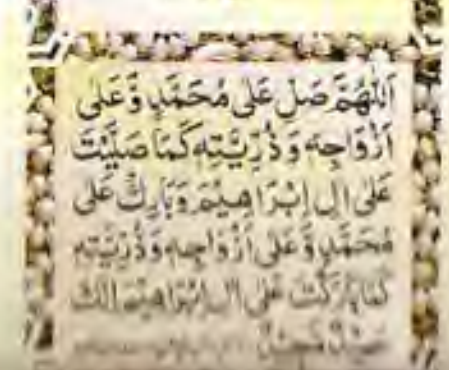 اَللّٰهُمَّ صَلِّ عَلٰى مُحَمَّدٍ وَّعَلٰى
اَزْوَاجِهٖ وَذُرِّيَّتِهٖ كَمَا صَلَّيْتَ
عَلٰى اٰلِ اِبْرَاهِيْمَ وَبَارِكْ عَلٰى
مُحَمَّدٍ وَّعَلٰى اَزْوَاجِهٖ وَذُرِّيَّتِهٖ
كَمَا بَارَكْتَ عَلٰى اٰلِ اِبْرَاهِيْمَ اِنَّكَ
حَمِيْدٌ مَّجِيْدٌ